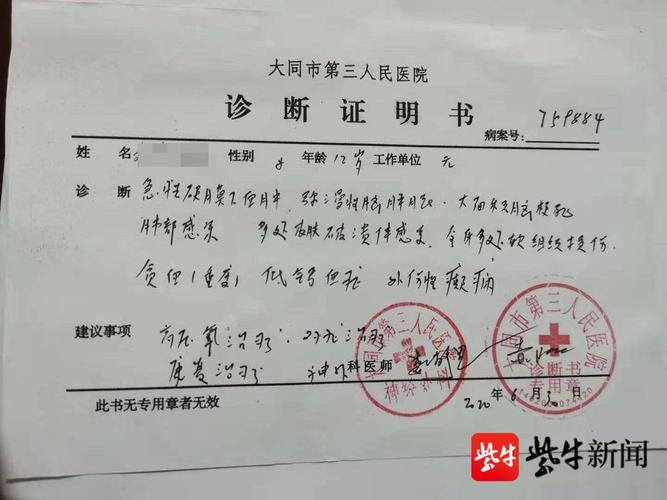 大同市第三人民医院
诊断证明书
病案号: 759884
姓名 性别 年龄 12岁 工作单位 无
诊断 急性硬膜下血肿、弥漫性脑肿胀、大面积脑梗死
肺部感染 多处皮肤破溃伴感染、全身多处软组织损伤、
贫血(重度) 低钙血症 外伤性癫痫
建议事项 高压氧治疗、对症治疗
康复治疗 神外科医师
大同市第三人民医院
神经外科
大同市第三人民医院
诊断书
专用章
2020年6月30日
此书无专用章者无效
紫牛 紫牛新闻